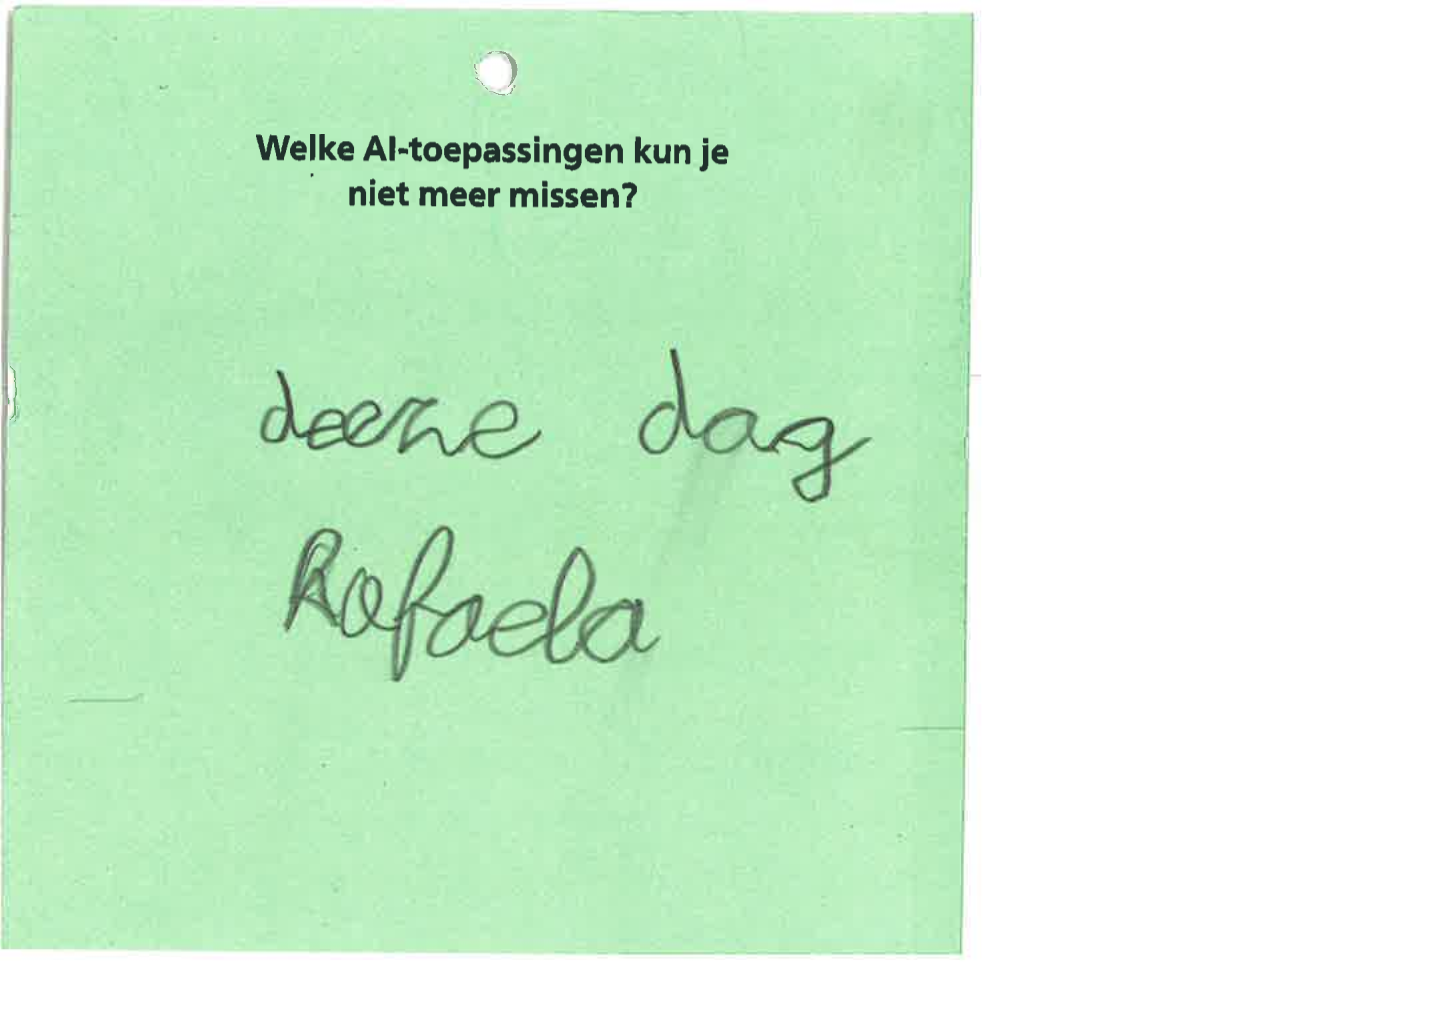 Welke AI-toepassingen kun je
niet meer missen?
deeze dag
Rafaela